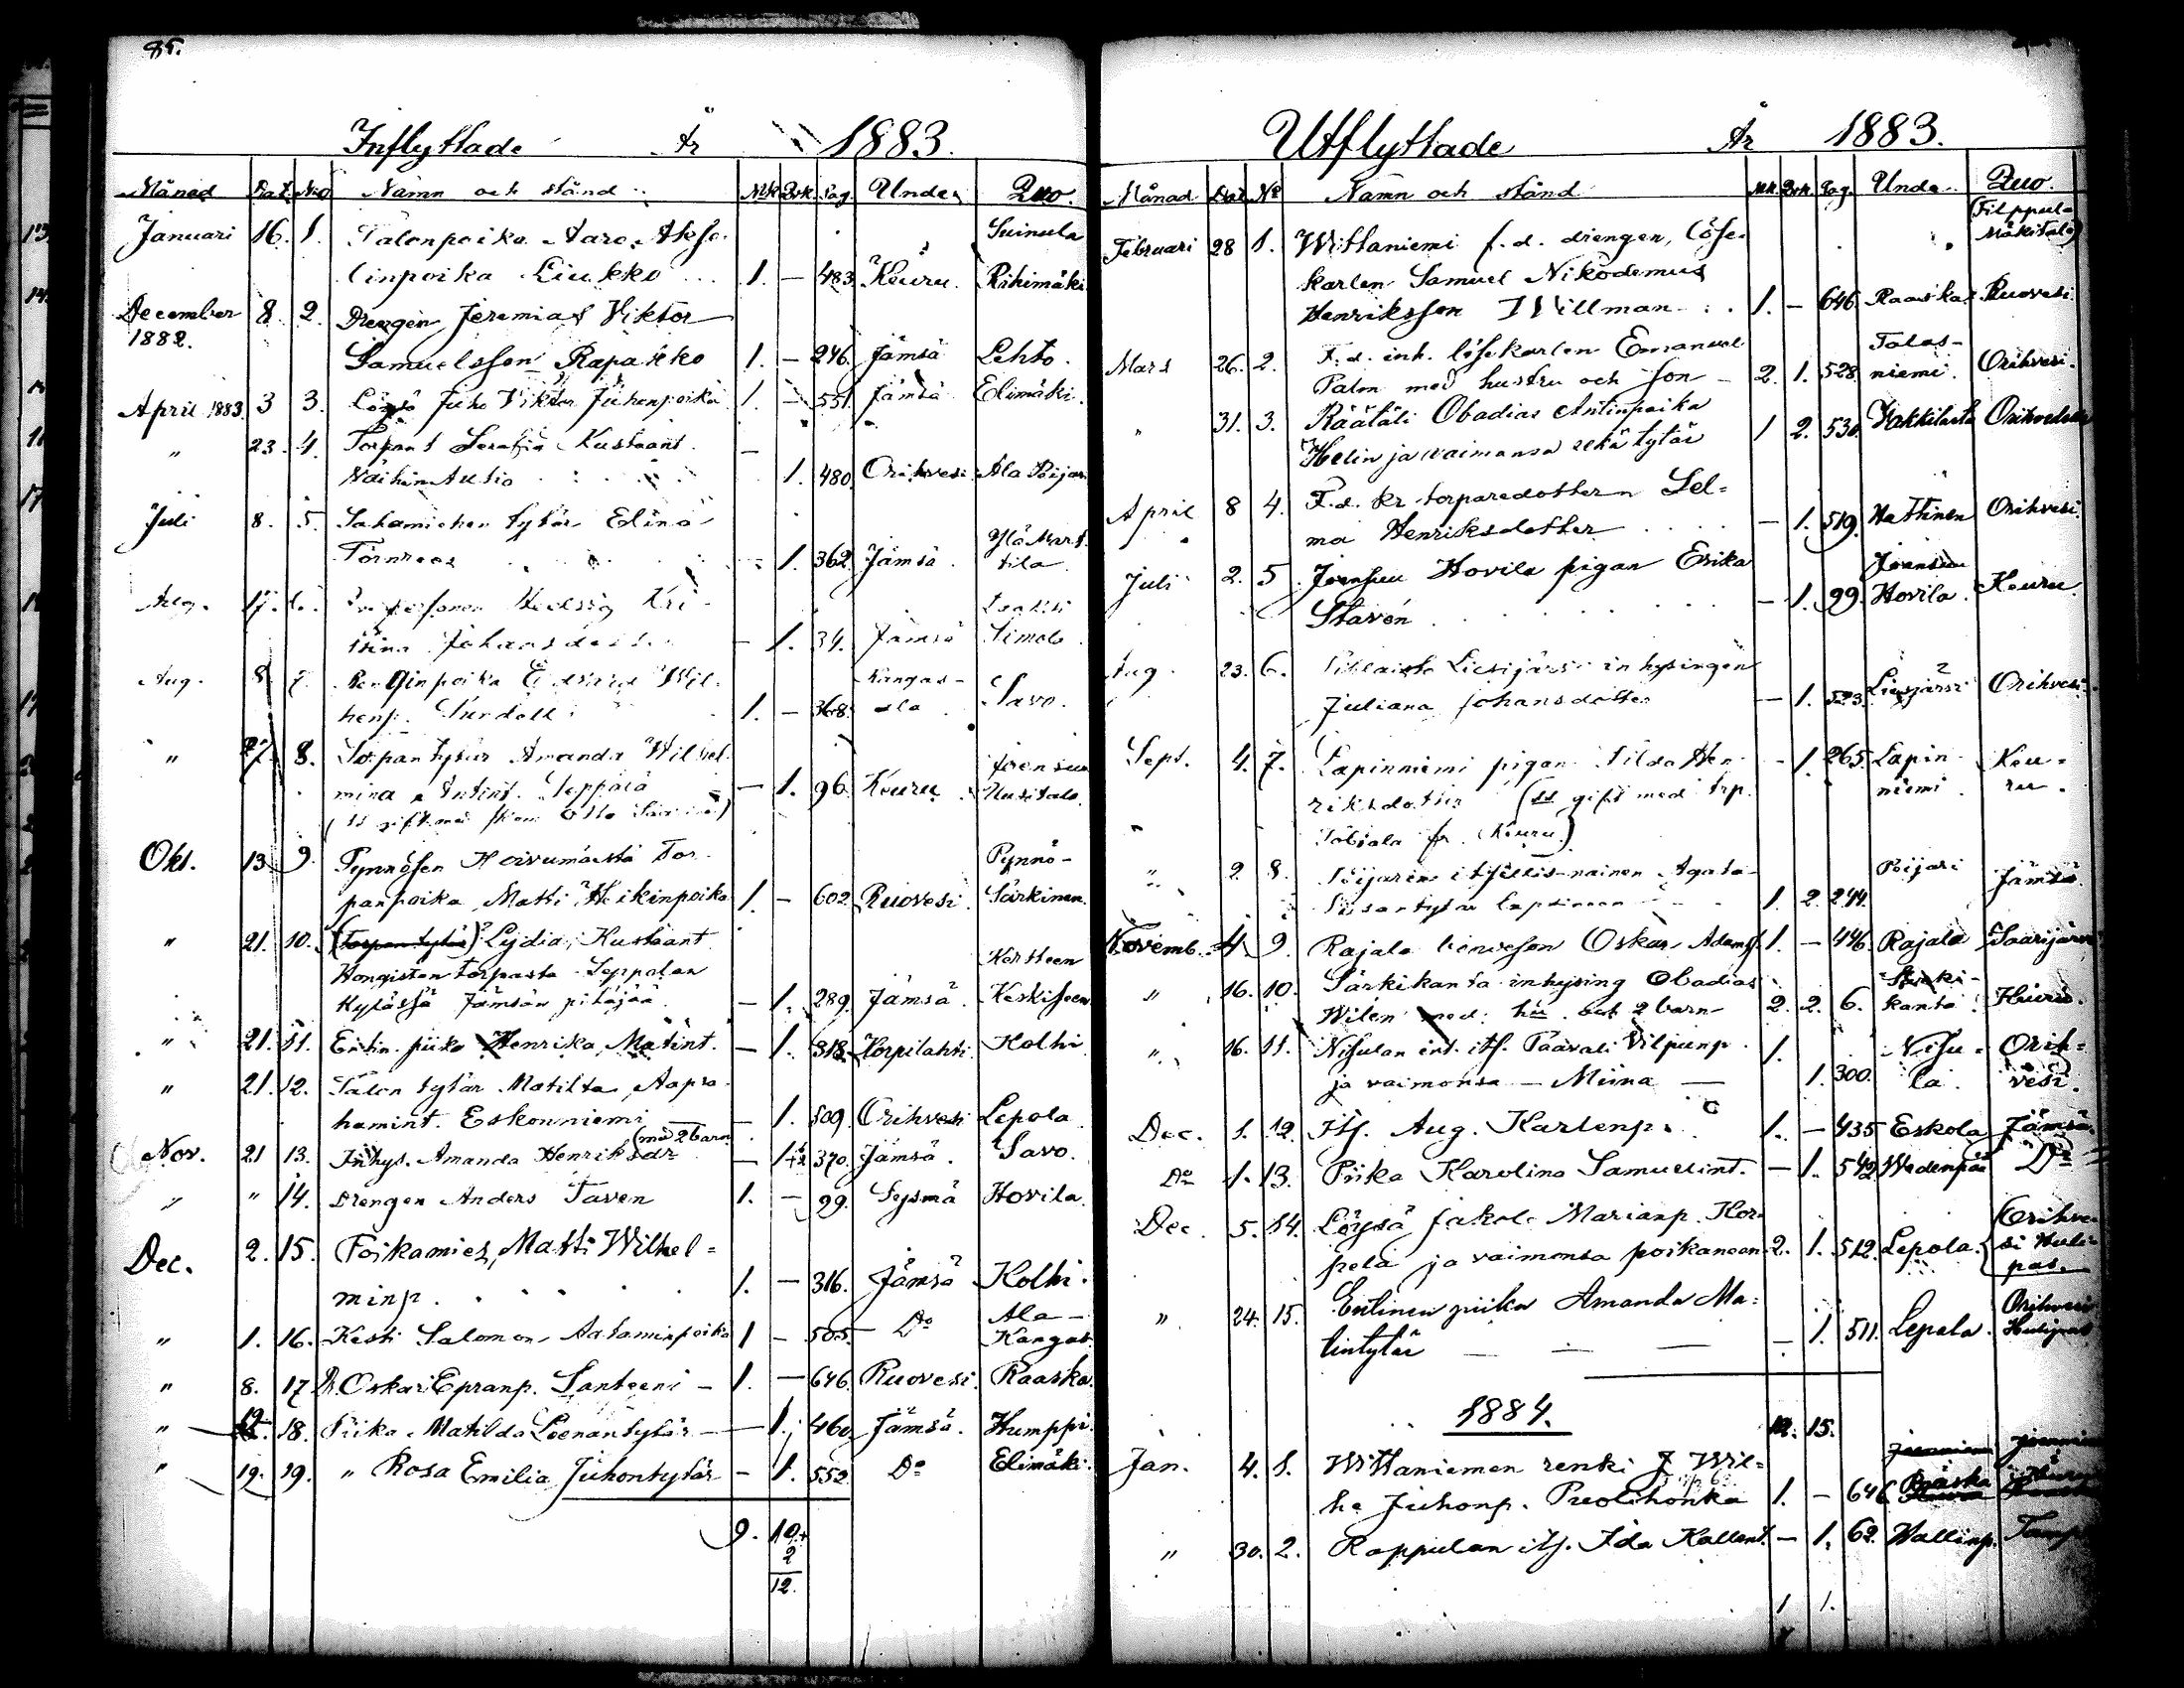 85.
Inflyttade År 1883.
Månad Dat. No Namn och stånd Mk Qvk. Pag. Under Quo.
Januari 16. 1. Talonpoika Aaro Akse- Suinula
linpoika Liukko 1. — 483. Keuru. Riihimäki
December 8. 2. Drengen Jeremias Viktor
1882.
Samuelsson Rapakko 1. — 246. Jämsä Lehto.
April 1883. 3 3. Löysä Juho Viktor Juhonpoika 1. — 551. Jämsä Elimäki.
" 23. 4. Torpant Serafia Kustaant. —
Autio 1. 480. Orihvesi Ala Poijari
Juli 8. 5. Sahamiehen tytär Elina
Törnroos — 1. 362. Jämsä. Ylä Mart-
tila
Aug. 17. 6. Hedvig Kri-
stina Johansdotter — 1. 34. Jämsä Simola
Aug. 8 7. Rengin poika Edvard Wil- Kangas-
henp. Sundell 1. — 368. ala Savo.
" 27. 8. Torpantytär Amanda Wilhel- Joensuu
mina Antint. Seppälä — 1. 96. Keuru. Uusitalo.
Okt. 13. 9. Pynnösen Koivumäestä Tor- Pynnö-
panpoika Matti Heikinpoika 1. — 602. Ruovesi. Särkinen.
" 21. 10. (Torpantytär) Lydia Kustaant.
Hongiston torpasta Seppolan Kortteen
kylässä Jämsän pitäjää — 1. 289. Jämsä. Keskiseen
" 21. 11. Entin. piika Henrika Matint. — 1. 318. Korpilahti. Kolhi
" 21. 12. Talon tytär Matilta Aapra-
hamint. Eskonniemi — 1. 509. Orihvesi Lepola
Nov. 21 13. Inhys. Amanda Henriksdr (med 2 barn — 1+2 370. Jämsä. Savo.
" " 14. Drengen Anders Taven 1. — 99. Sysmä Hovila.
Dec. 2. 15. Poikamies, Matti Wilhel-
minp. 1. — 316. Jämsä Kolhi.
" 1. 16. Kesti Salomon Aataminpoika 1 — 505. Do Ala-
Kangas.
" 8. 17 D. Oskari Epranp. Santeeni — 1. — 646. Ruovesi. Raaska.
" 19. 18. Piika Matilda Leenantytär — 1. 460 Jämsä. Humppi.
" 19. 19. " Rosa Emilia Juhontytär — 1. 552. Do Elimäki.
9. 10+
2
12.
Utflyttade År 1883.
Månad Dat No Namn och stånd Mk. Qvk. Pag. Unde. Quo.
Februari 28 1. Wittaniemi f.d. drengen, löse- (Filppul-
Mäkitalo)
karlen Samuel Nikodemus
Henriksson Willman 1. — 646. Raaska Ruovesi.
Mars 26. 2. F.d. inh. lösekarlen Emanuel Talas-
Palm med hustru och son — 2. 1. 528. niemi. Orihvesi.
" 31. 3. Räätäli Obadias Antinpoika 1 2. 530.
Helin ja vaimonsa sekä tytär
April 8 4. F.d. kr. torparedottern Sel-
ma Henriksdotter — 1. 519. Hattinen Orihvesi.
Juli 2. 5. Joensuu Hovila pigan Erika Joensuu
Stavén — 1. 99. Hovila. Keuru.
Aug. 23. 6. Liesijärvi inhysingen
Juliana Johansdotter — 1. 523. Liesijärvi Orihvesi.
Sept. 4. 7. Lapinniemi pigan Tilda Hen- — 1. 265. Lapin- Keu-
riksdotter (ss gift med trp. niemi. ru.
Tobiala fr. Keuru)
" 2 8. Poijarin itsellis-nainen Agata Poijari
1. 2. 244. Jämsä.
Novemb. 4. 9. Rajala bondeson Oskar Adamss. 1. — 446. Rajala Saarijärvi
" 16. 10. Särkikanta inhysing Obadias Särki-
Wilén med hu. och 2 barn 2. 2. 6. kanta. Keuru.
" 16. 11. Nisulan ent. its. Paavali Vilpunp. 1. Nisu- Orih-
ja vaimonsa — Miina — 1. 300. la. vesi.
Dec. 1. 12. Its. Aug. Karlenp. 1. — 435 Eskola Jämsä.
Do 1. 13. Piika Karolina Samuelint. — 1. 542 Wedenpää Do
Dec. 5. 14. Löysä Jakob Marianp. Kor- Orihve-
pela ja vaimonsa poikaneen. 2. 1. 512. Lepola. si Huli-
pas.
" 24. 15. Entinen piika Amanda Ma- Orihvesi
tintytär — — — 1. 511. Lepola. Hulipas
1884. 12. 15.
Jan. 4. 1. Wittaniemen renki J Wil-
he Juhonp. Preolihonka 1. — 646. Raaska
" 30. 2. Roppulan its. Ida Kallent. — 1. 62. Wallinp.
1 1.